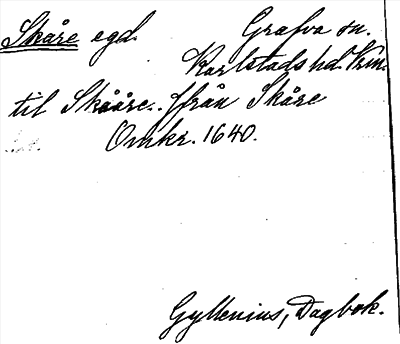 Skåre egd. Grafva sn.
Karlstads hd. Vrm.
til Skååre. ffrån Skåre
Omkr. 1640.
Gyllenius, Dagbok.